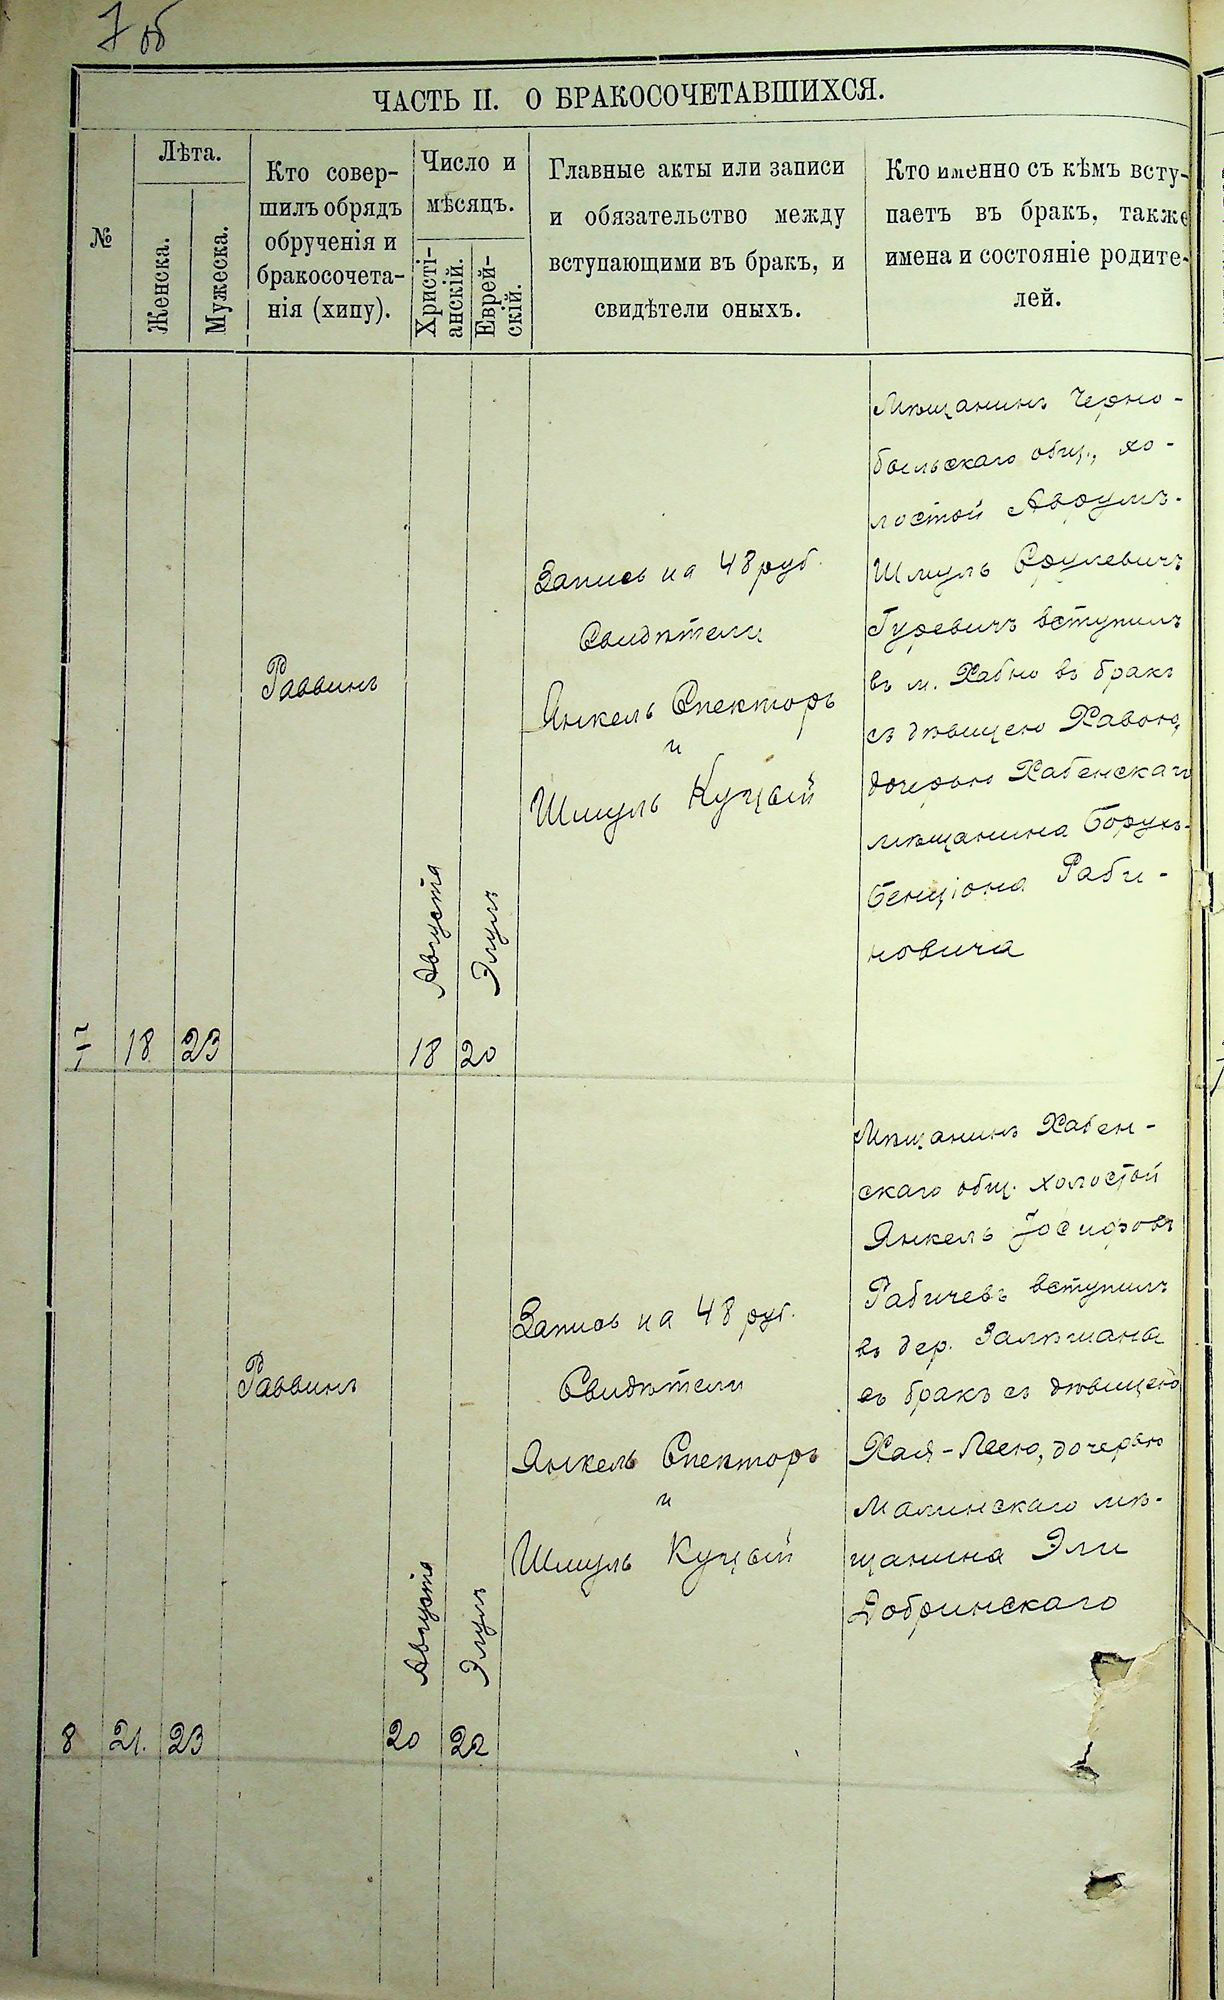 7 об
ЧАСТЬ II. О БРАКОСОЧЕТАВШИХСЯ.
№
Лѣта.
Женска.
Мужеска.
Кто совер-
шилъ обрядъ
обрученія и
бракосочета-
нія (хипу).
Число и
мѣсяцъ.
Христі-
анскій.
Еврей-
скій.
Главные акты или записи
и обязательство между
вступающими въ бракъ, и
свидѣтели оныхъ.
Кто именно съ кѣмъ всту-
паетъ въ бракъ, также
имена и состояніе родите-
лей.
7
18
23
Раввинъ
Августа
18
Элулъ
20
Запись на 48 руб.
Свидѣтели
Янкель Спекторъ
и
Шмуль Куцый
Мѣщанинъ Черно-
быльскаго общ., хо-
лостой Аврумъ-
Шмуль Срулевичъ
Гуревичъ вступилъ
въ м. Хабно въ бракъ
съ дѣвицею Хавою,
дочерью Хабенскаго
мѣщанина Борухъ-
Бенціона Раби-
новича
8
21.
23
Раввинъ
Августа
20
Элулъ
22
Запись на 48 руб.
Свидѣтели
Янкель Спекторъ
и
Шмуль Куцый
Мѣщанинъ Хабен-
скаго общ. холостой
Янкель Іосифовъ
Рабичевъ вступилъ
въ дер. Залѣшаны
въ бракъ съ дѣвицею
Хая-Леею, дочерью
Малинскаго мѣ-
щанина Эли
Добринскаго